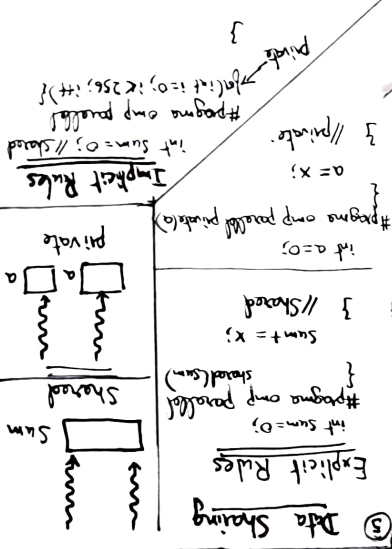 5 Data Sharing
Explicit Rules
int sum=0;
#pragma omp parallel
shared(sum)
{
sum += x;
} // Shared
int a=0;
#pragma omp parallel private(a)
{
a = x;
} // private
Sum
Shared
a a
private
Implicit Rules
int sum = 0; // shared
#pragma omp parallel
for(int i=0; i<256; i++){
private
}